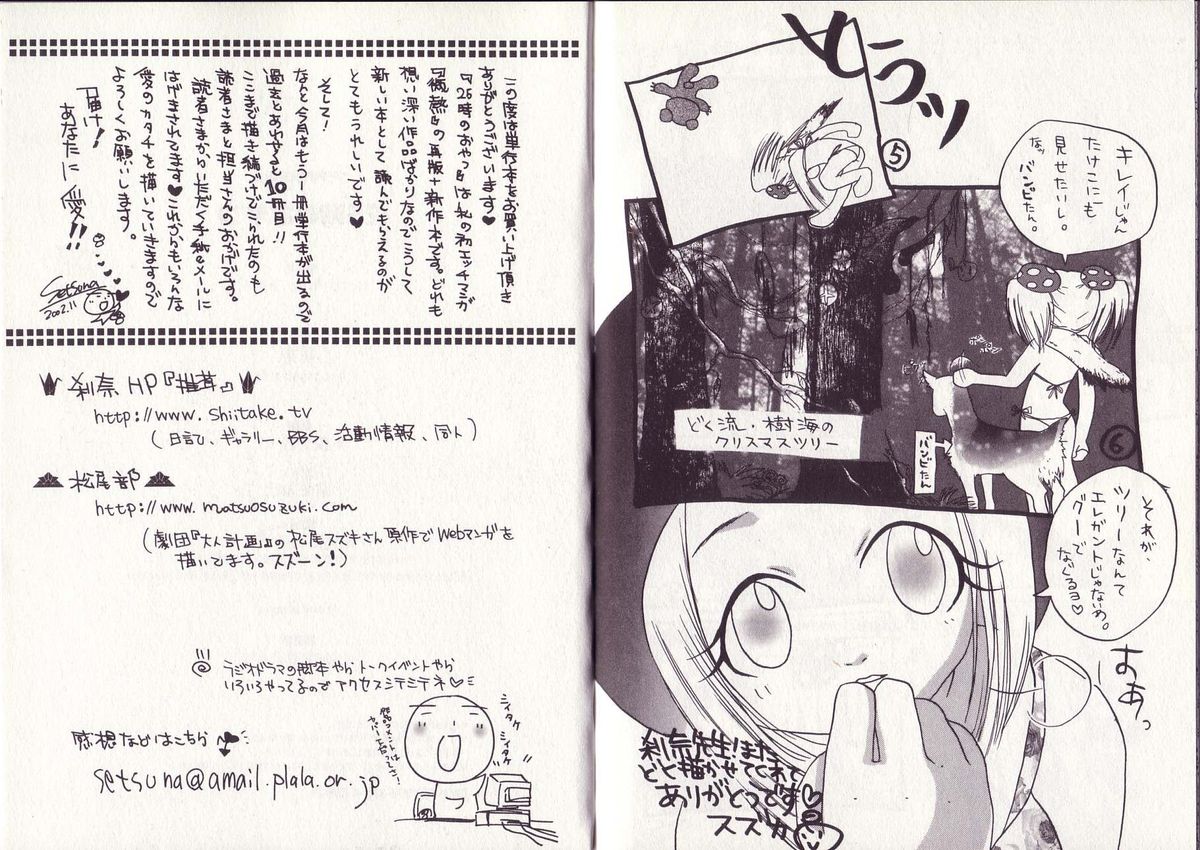 とうッ
⑤
キレイじゃん
たけこにも
見せたいし。
なッ
バンビたん。
どく流・樹海の
クリスマスツリー
バンビたん
⑥
それが、
ツリーなんて
エレガントじゃないわ。
グーで
なぐるヨ♡
すあっ
刹奈先生!また
どく描かせてくれて
ありがとうです♡
スズカ
この度は単行本をお買い上げ頂き
ありがとうございます♥
『26時のおやつ』は私の初エッチマンガ
『微熱』の再版+新作本です。どれも
想い深い作品ばかりなのでこうして
新しい本として読んでもらえるのが
とてもうれしいです♥
そして!
なんと今月はもう一冊単行本が出るので
過去とあわせると10冊目!!
ここまで描き続けてこられたのも
読者さまと担当さんのおかげです。
読者さまからいただく手紙やメールに
はげまされてます♥これからもいろんな
愛のカタチを描いていきますので
よろしくお願いします。
届け!
あなたに愛!!
Setsuna
2002.11
刹奈HP『椎茸』
http://www.shiitake.tv
(日記、ギャラリー、BBS、活動情報、同人)
松尾部
http://www.matsuosuzuki.com
(劇団『大人計画』の松尾スズキさん原作でWebマンガを
描いてます。スズーン!)
ラジオドラマの脚本やらトークイベントやら
いろいろやってるのでアクセスシテミテネ♡
シイタケ
シイタケ
感想などはこちら
setsuna@amail.plala.or.jp